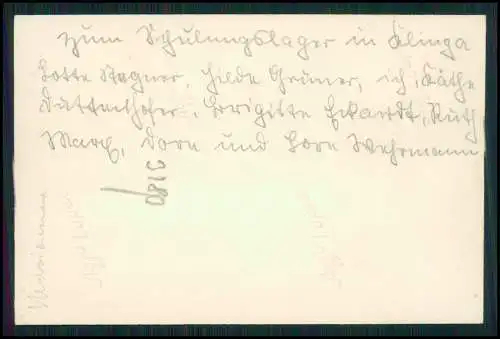 Zum Schulungslager in Klinga
Lotte Wagner, Hilde Grüner, ich, Käthe
Duttenhofer, Brigitte Eckardt, Ruth
Marx, Dora und Lore Wehrmann
3180